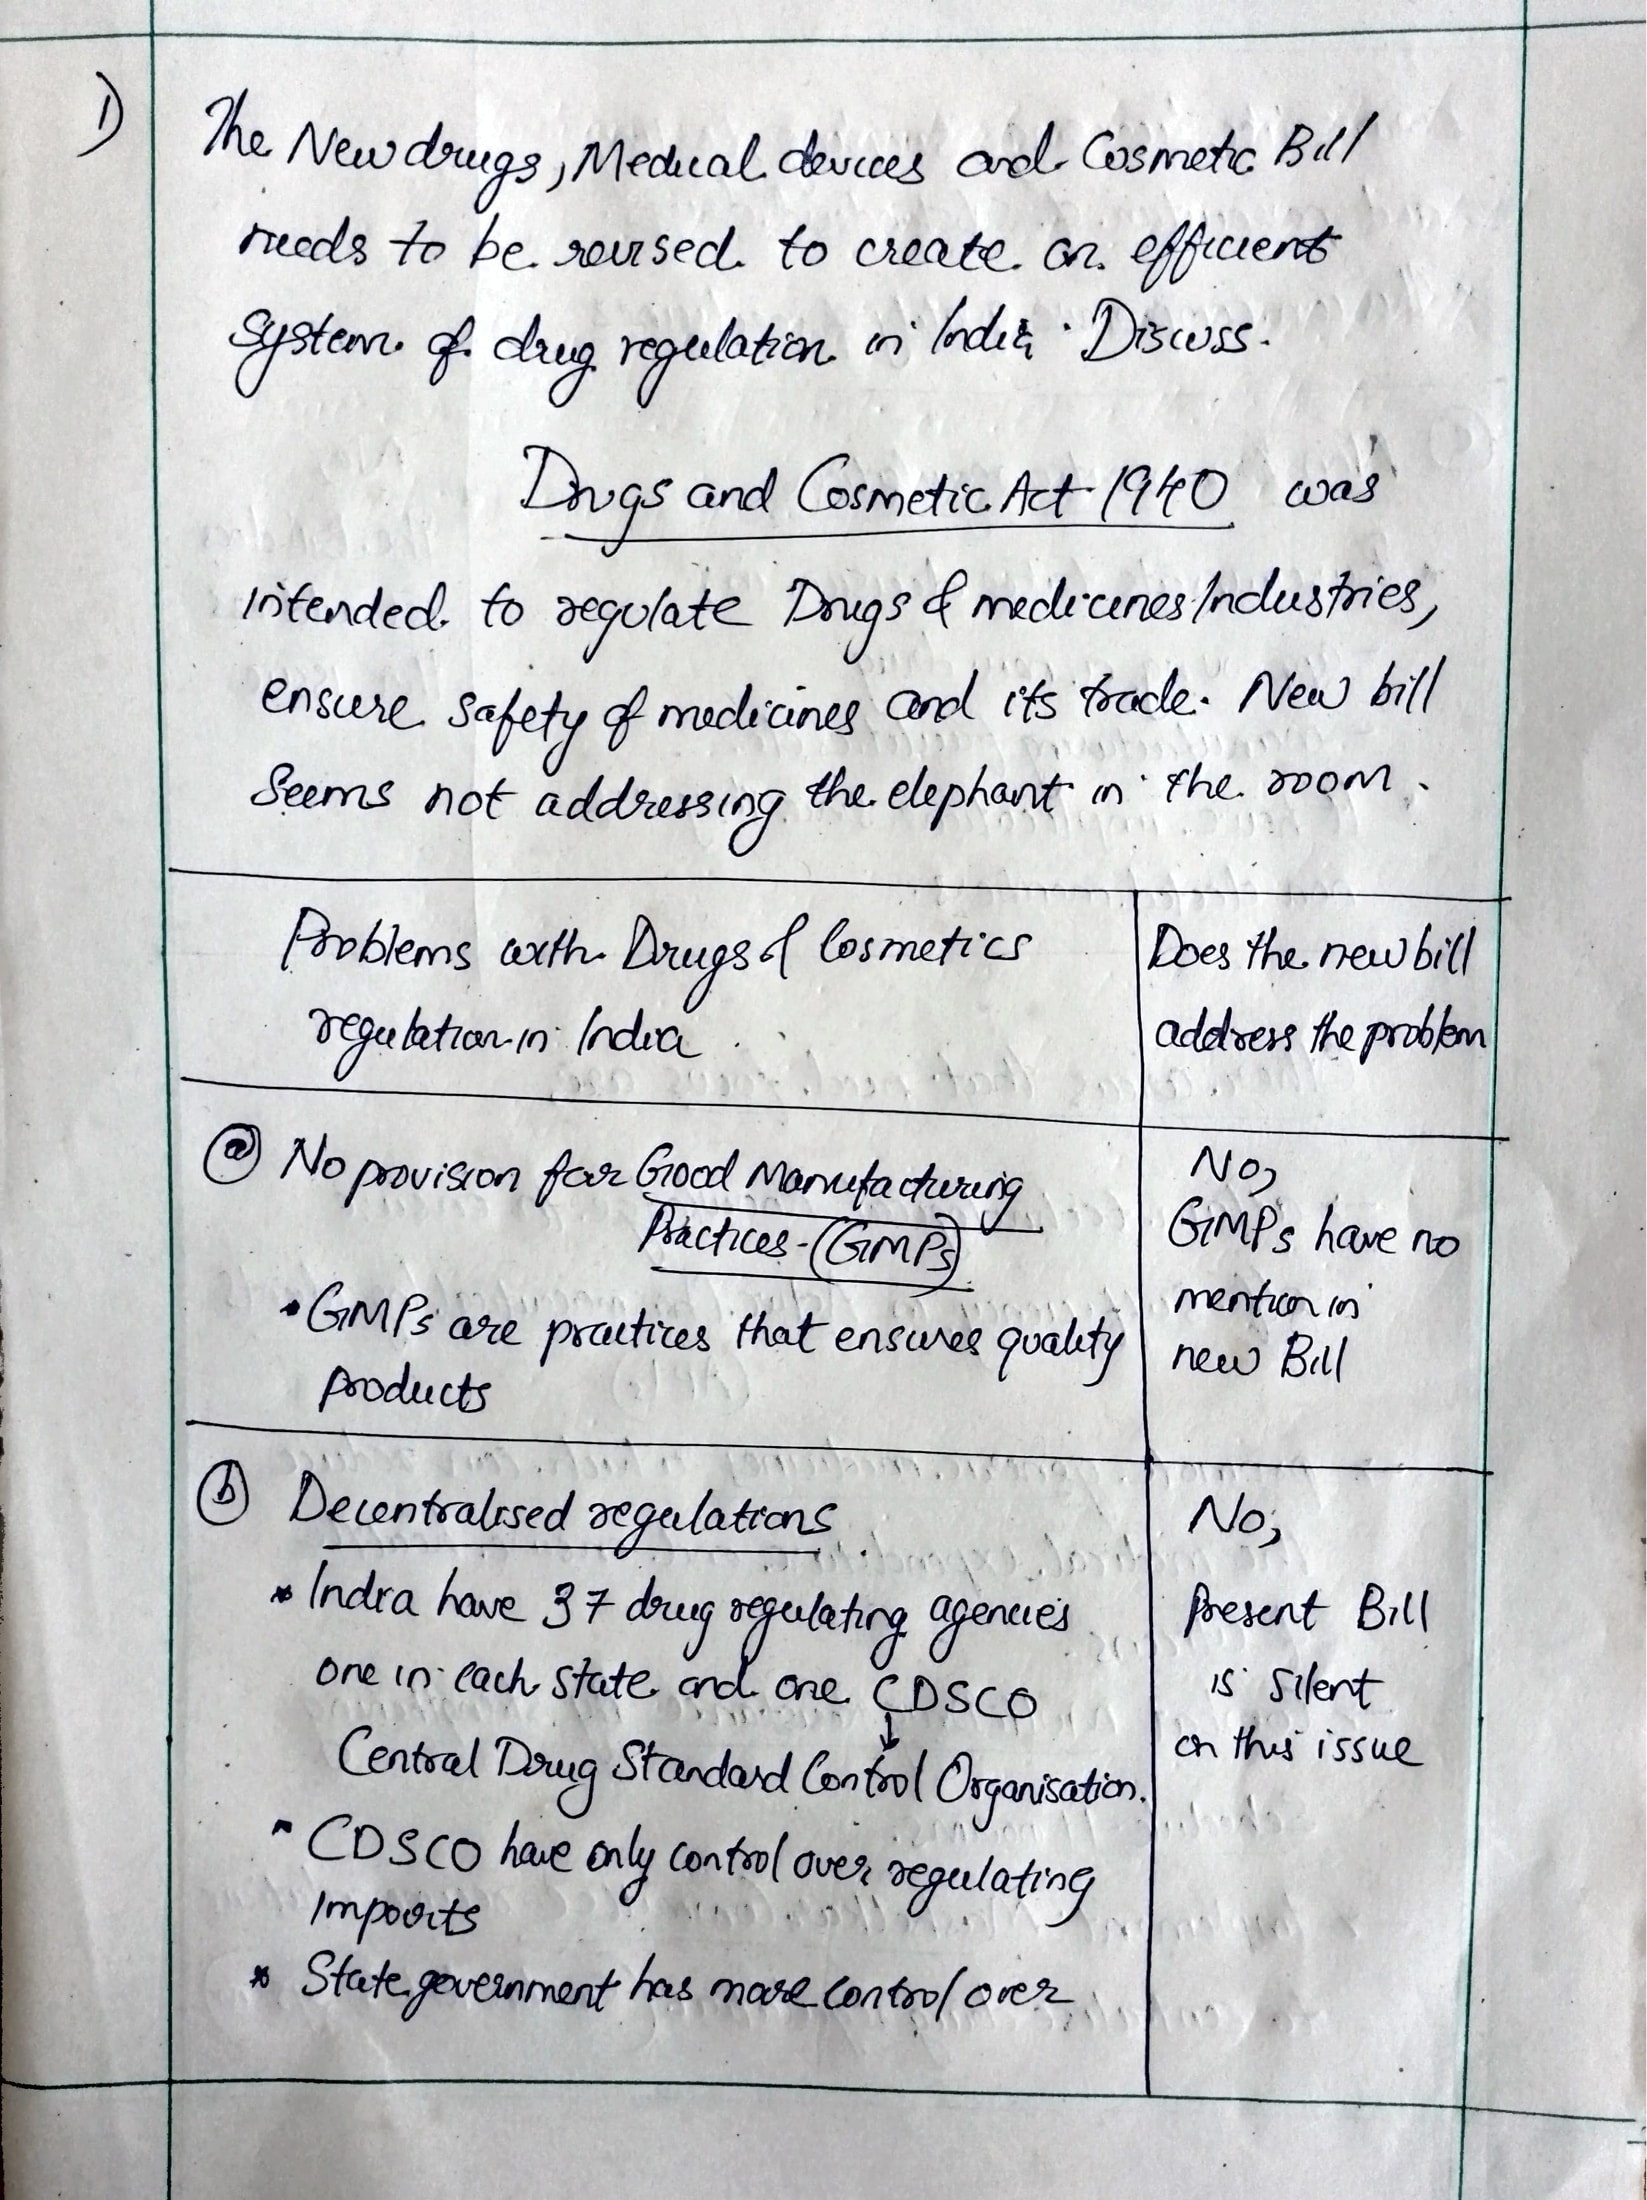 1)
The New drugs, Medical devices and Cosmetic Bill
needs to be revised to create an efficient
system of drug regulation in India. Discuss.
Drugs and Cosmetic Act 1940 was
intended to regulate Drugs & medicines Industries,
ensure safety of medicines and its trade. New bill
Seems not addressing the elephant in the room.
Problems with Drugs & Cosmetics
regulation in India
Does the new bill
address the problem
(a) No provision for Good Manufacturing
Practices - (GMPs)
• GMPs are practices that ensures quality
products
No,
GMPs have no
mention in
new Bill
(b) Decentralised regulations
* India have 37 drug regulating agencies
one in each state and one CDSCO
↓
Central Drug Standard Control Organisation.
* CDSCO have only control over regulating
Imports
* State government has more control over
No,
Present Bill
is silent
on this issue